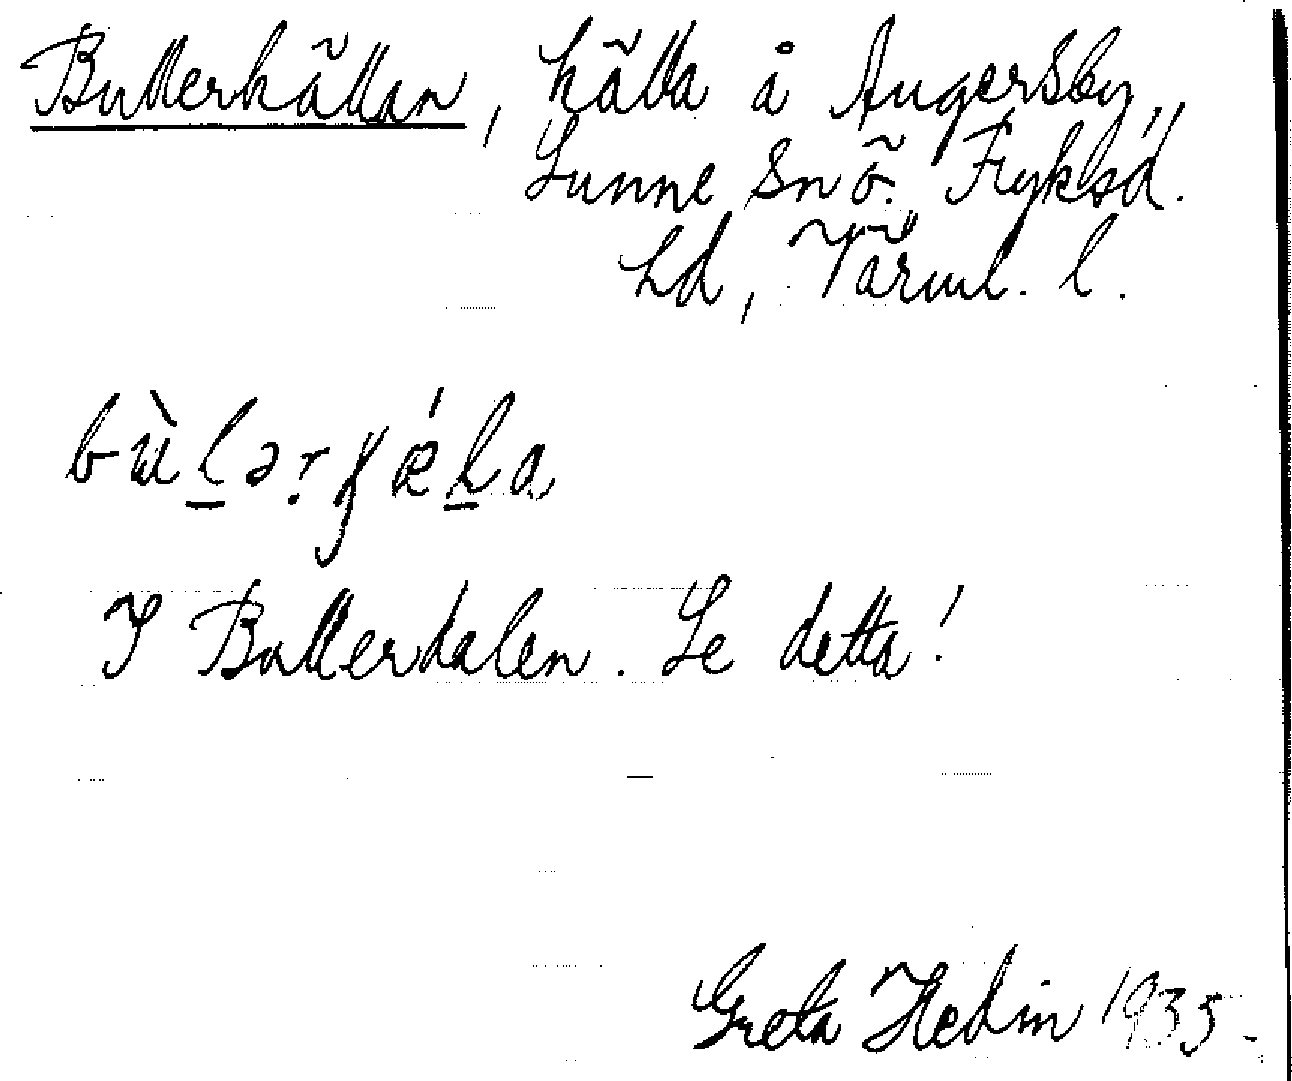 Bullerkällan, källa å Ängersby,
Sunne sn ö. Fryksd.
hd, Värml. l.
bùl̲ər̤ɟǽl̲a
I Bullerdalen. Se detta!
Greta Hedin 1935.